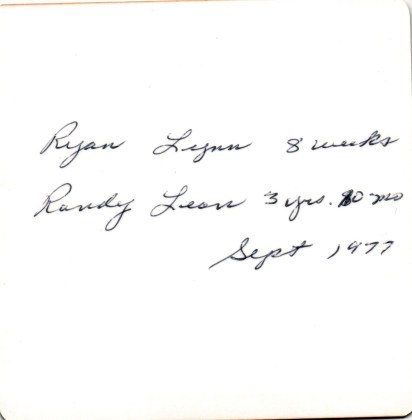 Ryan Lynn 8 weeks
Randy Leon 3 yrs. 10 mo
Sept 1977